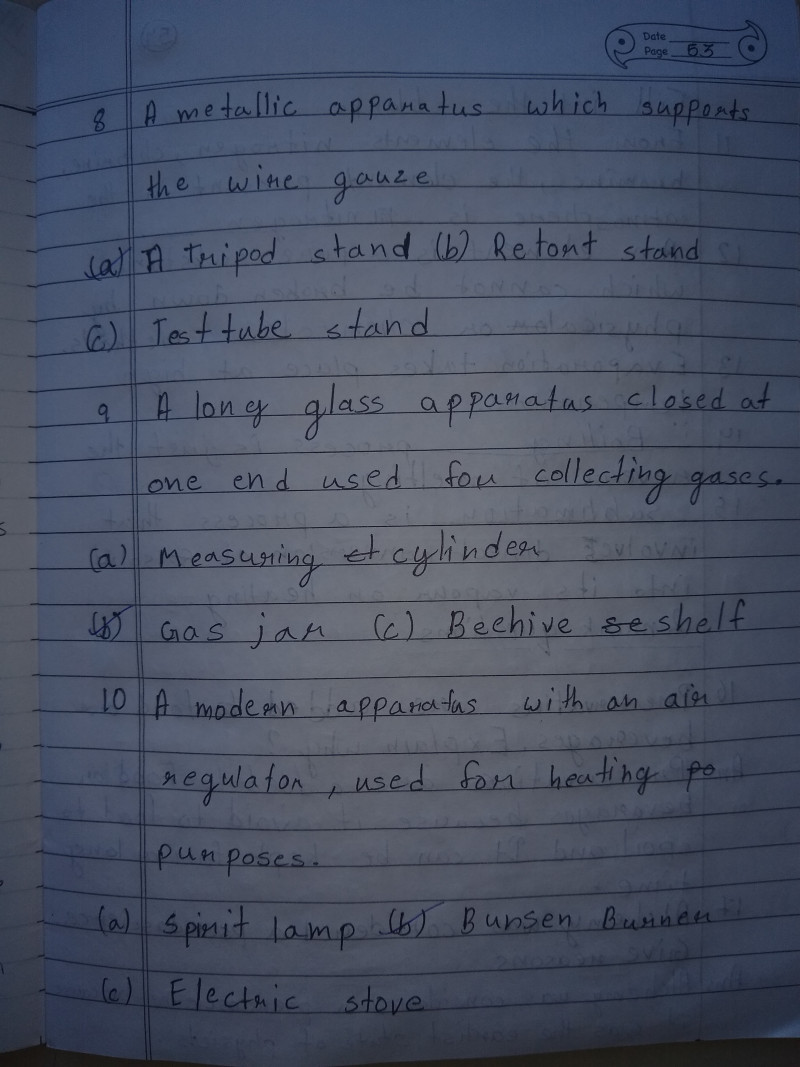 Date
Page 53
8 A metallic apparatus which supports
the wire gauze
(a) A Tripod stand (b) Retort stand
(c) Test tube stand
9 A long glass apparatus closed at
one end used for collecting gases.
(a) Measuring ct cylinder
(b) Gas jar (c) Beehive se shelf
10 A modern apparatus with an air
regulator, used for heating po
purposes.
(a) Spirit lamp (b) Bunsen Burner
(c) Electric stove